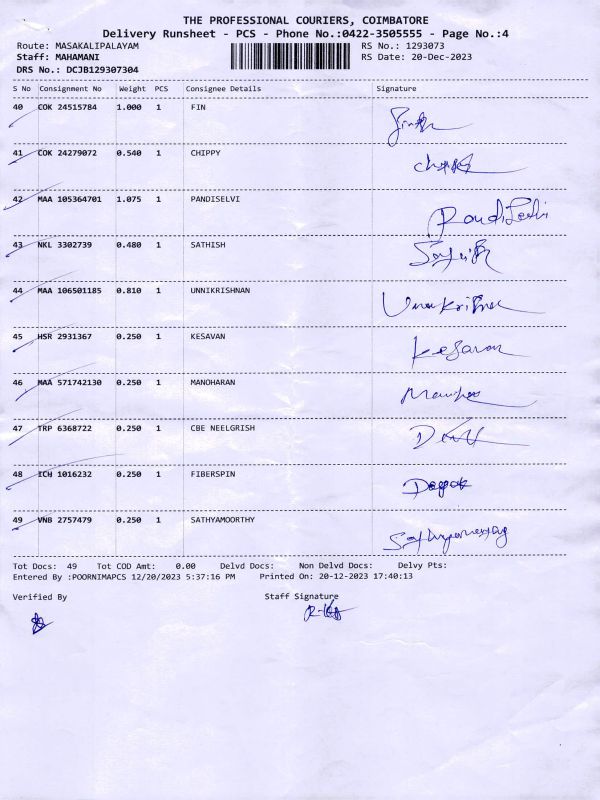 THE PROFESSIONAL COURIERS, COIMBATORE
Delivery Runsheet - PCS - Phone No.:0422-3505555 - Page No.:4
Route: MASAKALIPALAYAM RS No.: 1293073
Staff: MAHAMANI RS Date: 20-Dec-2023
DRS No.: DCJB129307304
S No Consignment No Weight PCS Consignee Details Signature
40 COK 24515784 1.000 1 FIN
41 COK 24279072 0.540 1 CHIPPY
42 MAA 105364701 1.075 1 PANDISELVI
43 NKL 3302739 0.480 1 SATHISH
44 MAA 106501185 0.810 1 UNNIKRISHNAN
45 HSR 2931367 0.250 1 KESAVAN Kesavan
46 MAA 571742130 0.250 1 MANOHARAN
47 TRP 6368722 0.250 1 CBE NEELGRISH
48 ICH 1016232 0.250 1 FIBERSPIN
49 VNB 2757479 0.250 1 SATHYAMOORTHY
Tot Docs: 49 Tot COD Amt: 0.00 Delvd Docs: Non Delvd Docs: Delvy Pts:
Entered By :POORNIMAPCS 12/20/2023 5:37:16 PM Printed On: 20-12-2023 17:40:13
Verified By Staff Signature